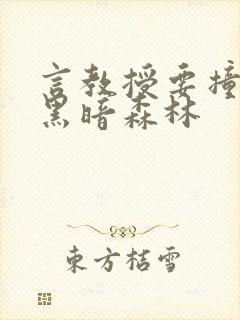 言教授要撞
黑暗森林
東方桔雪